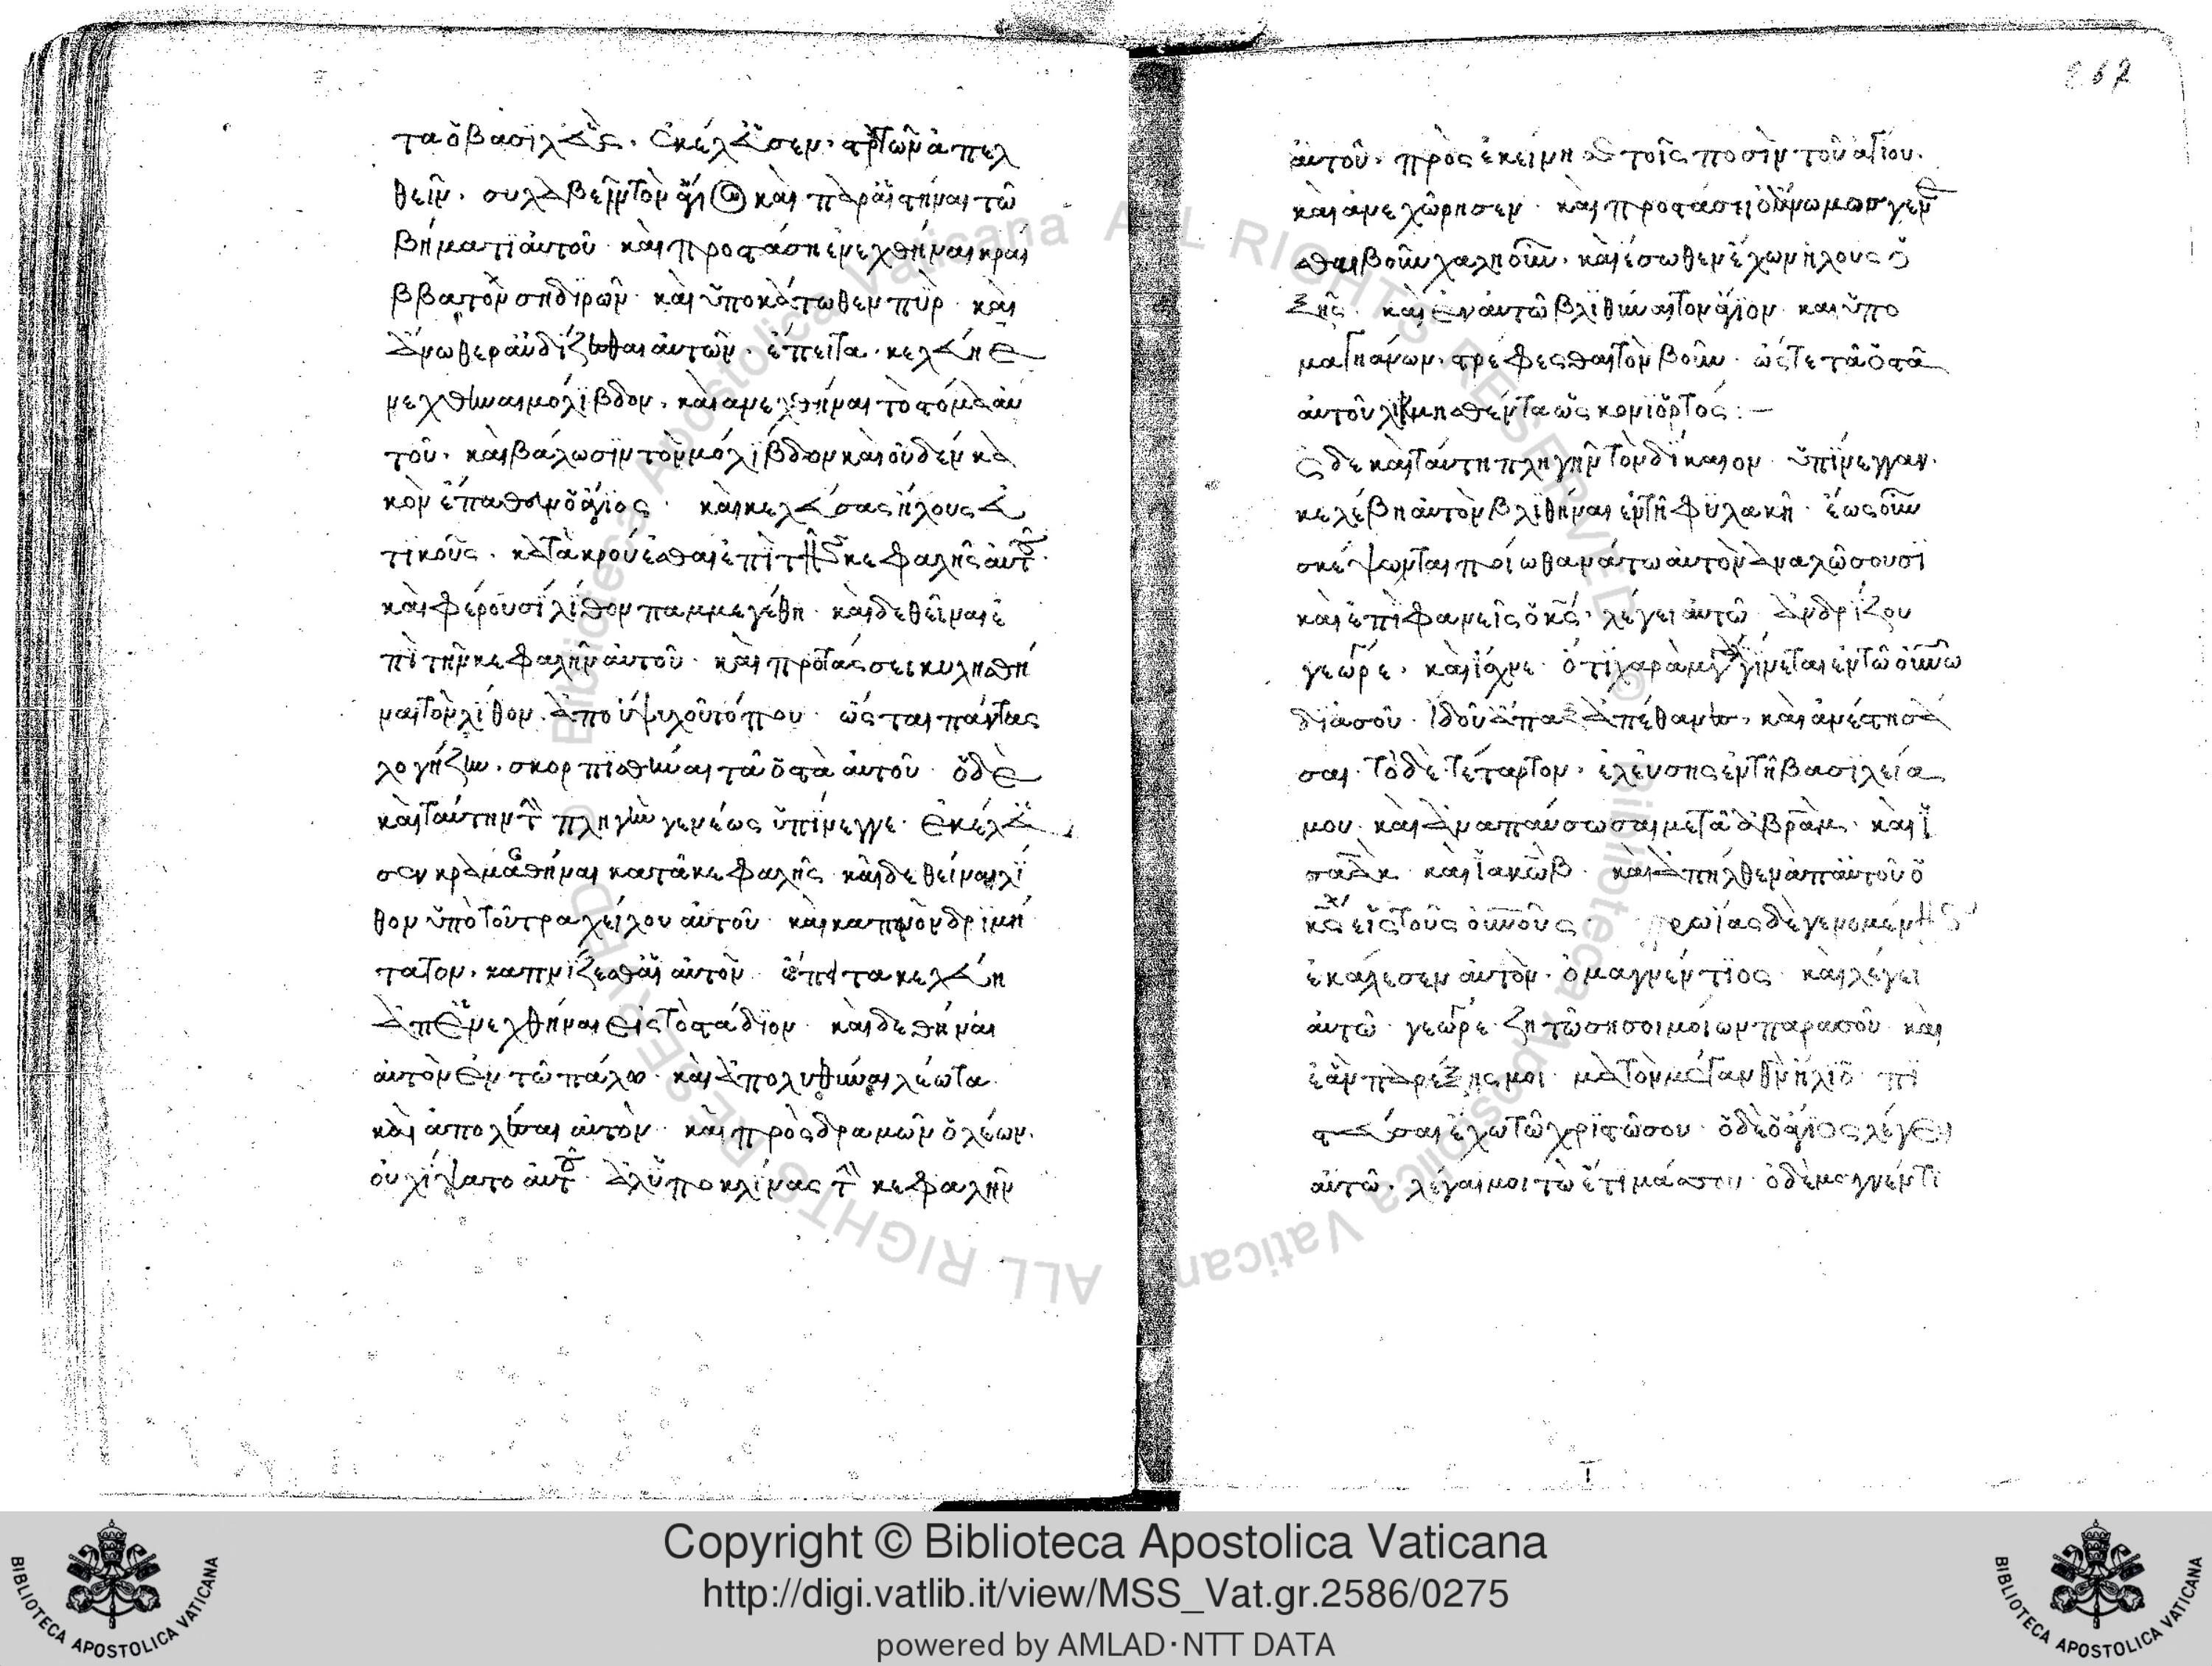 τα ὁ βασιλεὺς. ἐκέλευσεν. στρατιωτῶν ἀπελ
θεῖν. συλαβεῖν τὸν ἅγιον καὶ παραστῆναι τῶ
βήματι αὐτοῦ καὶ προστάσει ἐνεχθῆναι κρά
ββατον σηδιρῶν καὶ ὑποκάτωθεν πῦρ καὶ
ἄνωθεν ῥαυδίζεσθαι αὐτῶν. ἔπειτα. κελεύει ἐ
νεχθῆναι μόλιβδον. καὶ ἀνεχθῆναι τὸ στόμα αὐ
τοῦ. καὶ βάλωσιν τὸν μόλιβδον καὶ οὐδὲν κα
κὸν ἔπαθεν ὁ ἅγιος. καὶ κελεύσας ἥλους δ
τικοῦς. κατακρούεσθαι ἐπὶ τῆς κεφαλῆς αὐτοῦ.
καὶ φέρουσι λίθον παμμεγέθη καὶ δεθεῖναι ἐ
πὶ τὴν κεφαλὴν αὐτοῦ καὶ προτάσσει κυλησθῆ
ναι τὸν λίθον ἀπὸ ὑψιλοῦ τόπου ὥσται πάντας
λογήζην. σκορπισθῆναι τὰ ὀστὰ αὐτοῦ ὁ δὲ
καὶ ταύτην τὴν πληγὴν γενέως ὑπίνεγγε. ἐκέλευ
σεν κραμασθῆναι κατὰ κεφαλῆς καὶ δεθεῖναι λί
θον ὑπὸ τοῦ τραχείλου αὐτοῦ καὶ καπνὸν δριμή
τατον. καπνίζεσθαι αὐτὸν ἔπιτα κελεύει
ἀπενεχθῆναι εἰς τὸ στάδιον καὶ δεθῆναι
αὐτὸν ἐν τῶ πάλω καὶ ἀπολυθῆναι λέωτα
καὶ ἀπολῦσαι αὐτὸν καὶ προσδραμὼν ὁ λέων.
οὐχ ἥψατο αὐτοῦ ἀλ ὑποκλίνας τὴν κεφαλὴν
267
αὐτοῦ. πρὸς ἐκείνη τοῖς ποσὶν τοῦ ἁγίου.
καὶ ἀνεχώρησεν καὶ προστάσει ὁ ἄνωμος γεν
σθαι βοῦν χαλκοῦν. καὶ ἔσωθεν ἔχων ἥλους ὀ
ξῆς καὶ ἐν αὐτῶ βλιθῆναι τὸν ἅγιον καὶ ὑπο
μαγκάνων. στρέφεσθαι τὸν βοῦν ὥστε τὰ ὀστὰ
αὐτοῦ λικμησθέντα ὡς κονιορτός:—
ὁ δὲ καὶ ταύτη πληγὴν τὸν δίκαιον ὑπίνεγγαν.
κελέβη αὐτὸν βλιθῆναι ἐν τῇ φυλακῇ ἕως οὖν
σκέψωνται ποίω θανάτω αὐτὸν ἀναλώσουσι
καὶ ἐπιφανεὶς ὁ κς. λέγει αὐτῶ ἀνδρίζου
γεώργε. καὶ ἴσχυε ὅτι χαρὰ μεγάλη γίνεται ἐν τῶ οὐνω
διὰ σοῦ ἰδοῦ ἅπαξ ἀπέθανες. καὶ ἀνέστησά
σαι τὸ δὲ τέταρτον. ἐλεύσης ἐν τῇ βασιλεία
μου καὶ ἀναπαύσω σαι μετὰ ἀβραὰμ καὶ ἰ
σαὰκ καὶ ἰακώβ καὶ ἀπῆλθεν ἀπαὐτοῦ ὁ
κς εἰς τοὺς οὐνοῦς πρωίας δὲ γενομένης
ἐκάλεσεν αὐτὸν ὁ μαγνέντιος καὶ λέγει
αὐτῶ γεώργε ζητῶ σησοιμοίων παρὰ σοῦ καὶ
ἐὰν παρέξης μοι μὰ τὸν μέγαν θεὸν ἥλιον πι
στεῦσαι ἔχω τῶ χριστῶ σου ὁ δὲ ὁ ἅγιος λέγει
αὐτῶ. λέγαι μοι τῶ ἔτιμά ἐστιν ὁ δὲ μαγνέντι